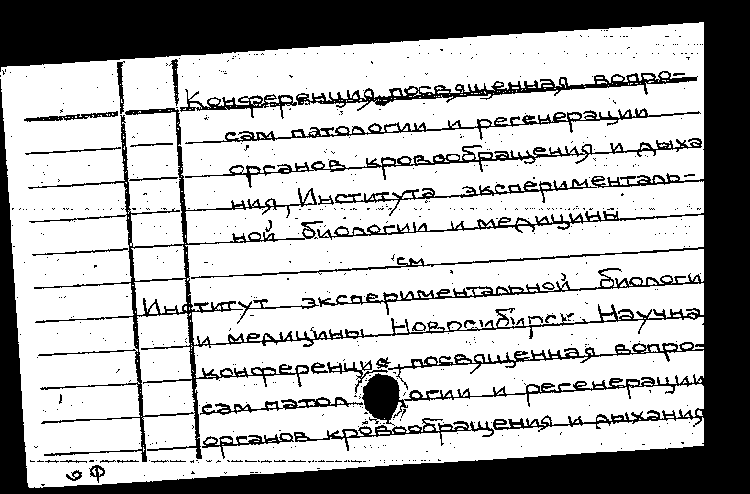 Конференция, посвященная вопро-
сам патологии и регенерации
органов кровообращения и дыха
ния, Института эксперименталь-
ной биологии и медицины
см.
Институт экспериментальной биологи
и медицины. Новосибирск. Научна
конференция, посвященная вопро-
сам патол огии и регенерации
органов кровообращения и дыхания